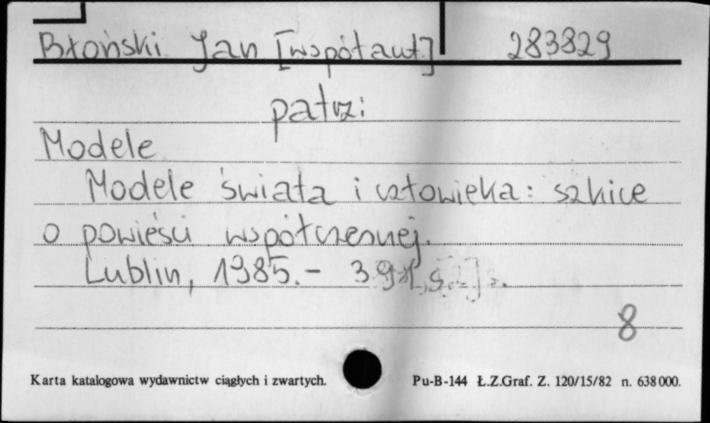 Błoński Jan [współaut.] 283829
patrz:
Modele
Modele świata i człowieka: szkice
o powieści współczesnej.
Lublin, 1985.-
8
Karta katalogowa wydawnictw ciągłych i zwartych. Pu-B-144 Ł.Z.Graf. Z. 120/15/82 n. 638000.